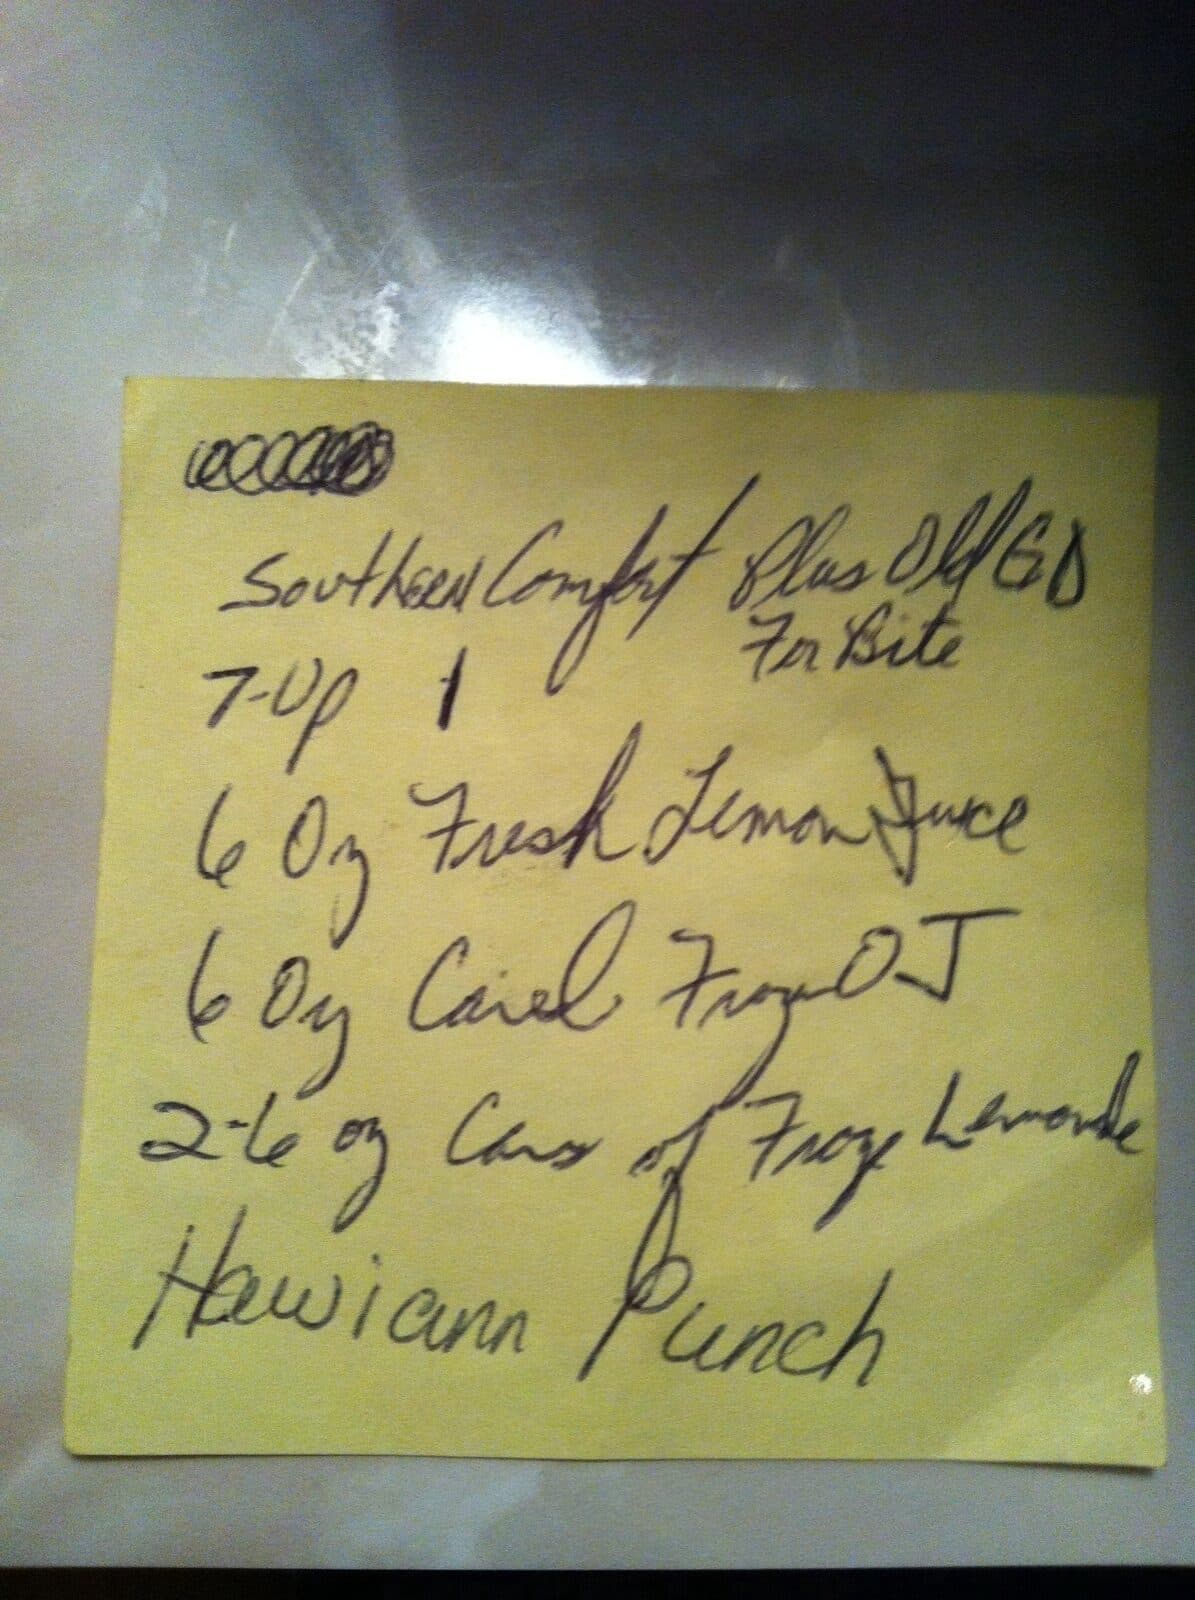 Southern Comfort Plus Old GD
For Bite
7-Up 1
6 Oz Fresh Lemon Juice
6 Oz Froze OJ
2-6 oz Cans of Froze Lemonade
Hawiann Punch